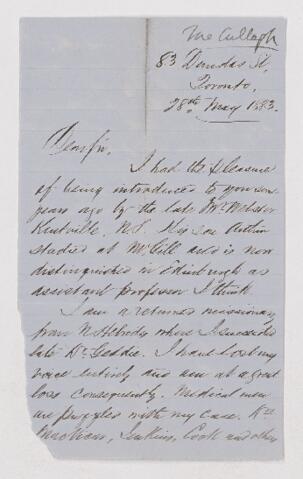 McCullagh
83 Dundas St,
Toronto,
28th May 1883.
Dear Sir,
I had the pleasure
of being introduced to you some
years ago by the late Dr. Webster
Kentville, N.S. His son Arthur
studied at McGill and is now
distinguished in Edinburgh as
assistant professor I think
I am a returned missionary
from N Hebrides where I succeeded
late Dr. Geddie. I have lost my
voice entirely and am at a great
loss consequently. Medical men
are puzzled with my case. Drs
Jenkins, Cook and others